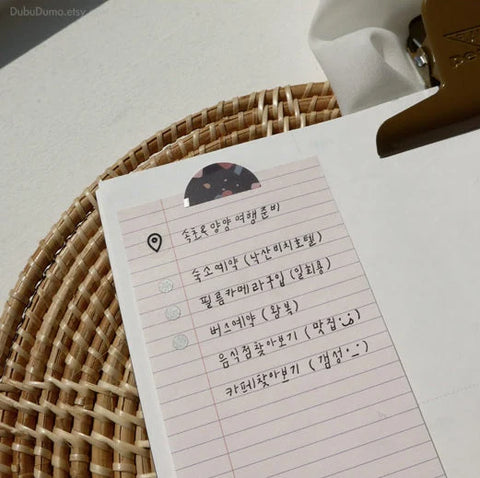 DubuDumo.etsy
속초&양양 여행 준비
숙소예약 (낙산비치호텔)
필름카메라구입 (일회용)
버스예약 (왕복)
음식점찾아보기 (맛집)
카페찾아보기 (갬성)